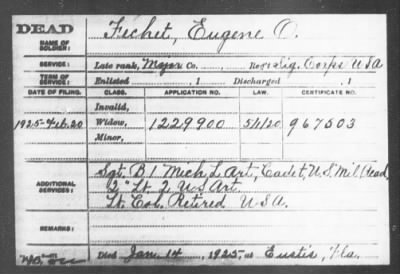 DEAD
NAME OF SOLDIER: Fechet, Eugene O.
SERVICE: Late rank, Major Co. , Reg't Sig. Corps USA
TERM OF SERVICE: Enlisted , 1 Discharged , 1
DATE OF FILING. CLASS. APPLICATION NO. LAW. CERTIFICATE NO.
Invalid,
1925-Feb.20 Widow, 1229900 5/1/20 967503
Minor,
Sgt. B 1 Mich. L. Art., Cadet, U.S. Mil Acad
ADDITIONAL SERVICES: 2" Lt. 2 U S Art.
Lt. Col. Retired U S A.
REMARKS:
Died Jan 14, 1925, at Eustis, Fla.